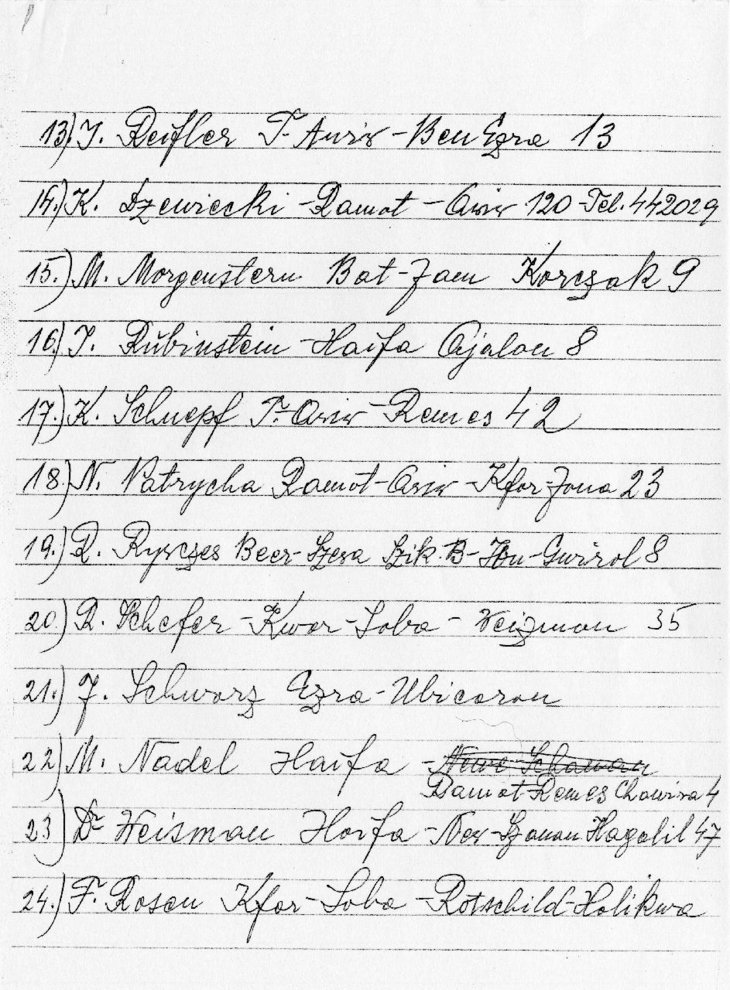 13.) J. Reifler T-Awiw-Ben Ezra 13
14.) K. Dzewiecki-Ramat-Awiw 120-Tel. 442029
15.) M. Morgenstern Bat-Jam Korczak 9
16.) J. Rubinstein-Haifa Ajalon 8
17.) K. Schnepf T-Awiw-Remes 42
18.) N. Patrycha Ramat-Awiw-Kfar-Jona 23
19.) R. Beer-Szewa Szik. B-Ibn-Gwirol 8
20.) R. Schefer-Kwar-Saba-Weizman 35
21.) J. Schwarz Ezra-Ubicaron
22.) M. Nadel Haifa
Ramat-Remes Chawiwa 4
23.) Dr Weisman Haifa-New-Szanan Hagalil 47
24.) F. Rosen Kfar-Saba-Rotschild-Halikwa